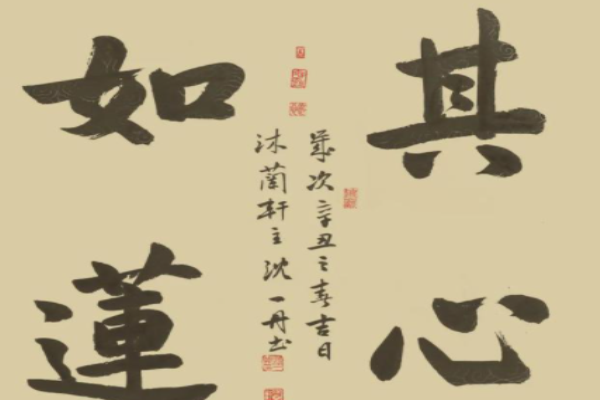 其心
如蓮
歲次辛丑之春吉日
沐蘭軒主沈一丹書